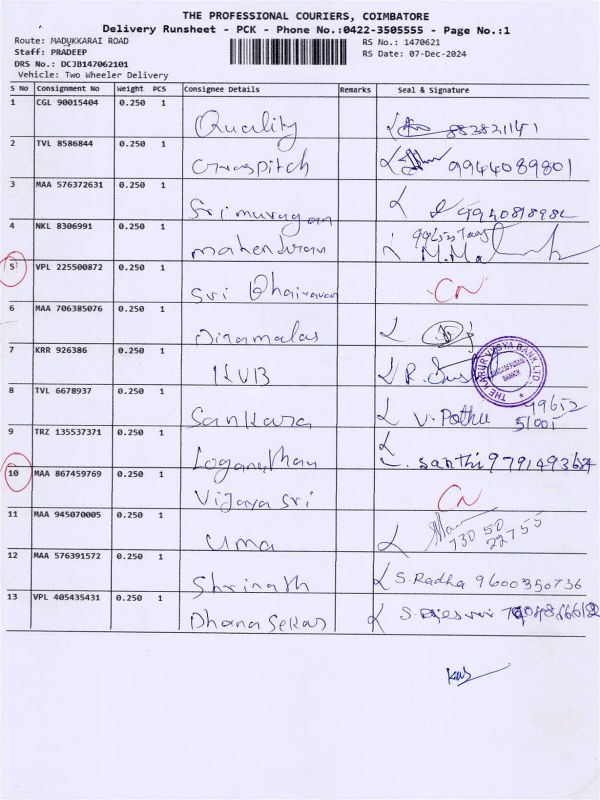 THE PROFESSIONAL COURIERS, COIMBATORE
Delivery Runsheet - PCK - Phone No.:0422-3505555 - Page No.:1
Route: MADUKKARAI ROAD
RS No.: 1470621
Staff: PRADEEP
RS Date: 07-Dec-2024
DRS No.: DCJB147062101
Vehicle: Two Wheeler Delivery
S No Consignment No Weight PCS Consignee Details Remarks Seal & Signature
1 CGL 90015404 0.250 1
Quality
2 TVL 8586844 0.250 1
9944089801
3 MAA 576372631 0.250 1
Srimurugan
4 NKL 8306991 0.250 1
M.Ma
5 VPL 225500872 0.250 1
Sri Bhairavar CN
6 MAA 706385076 0.250 1
Dinamalar
7 KRR 926386 0.250 1
KVB R.
THE KARUR VYSYA BANK LTD.
8 TVL 6678937 0.250 1
Sankara V. Pothu 99652
51001
9 TRZ 135537371 0.250 1
Loganathan Santhi 9791493687
10 MAA 867459769 0.250 1
Vijaya Sri CN
11 MAA 945070005 0.250 1
Uma 730 50
22755
12 MAA 576391572 0.250 1
Shrinath S. Radha 9600350736
13 VPL 405435431 0.250 1
Dhana Sekar